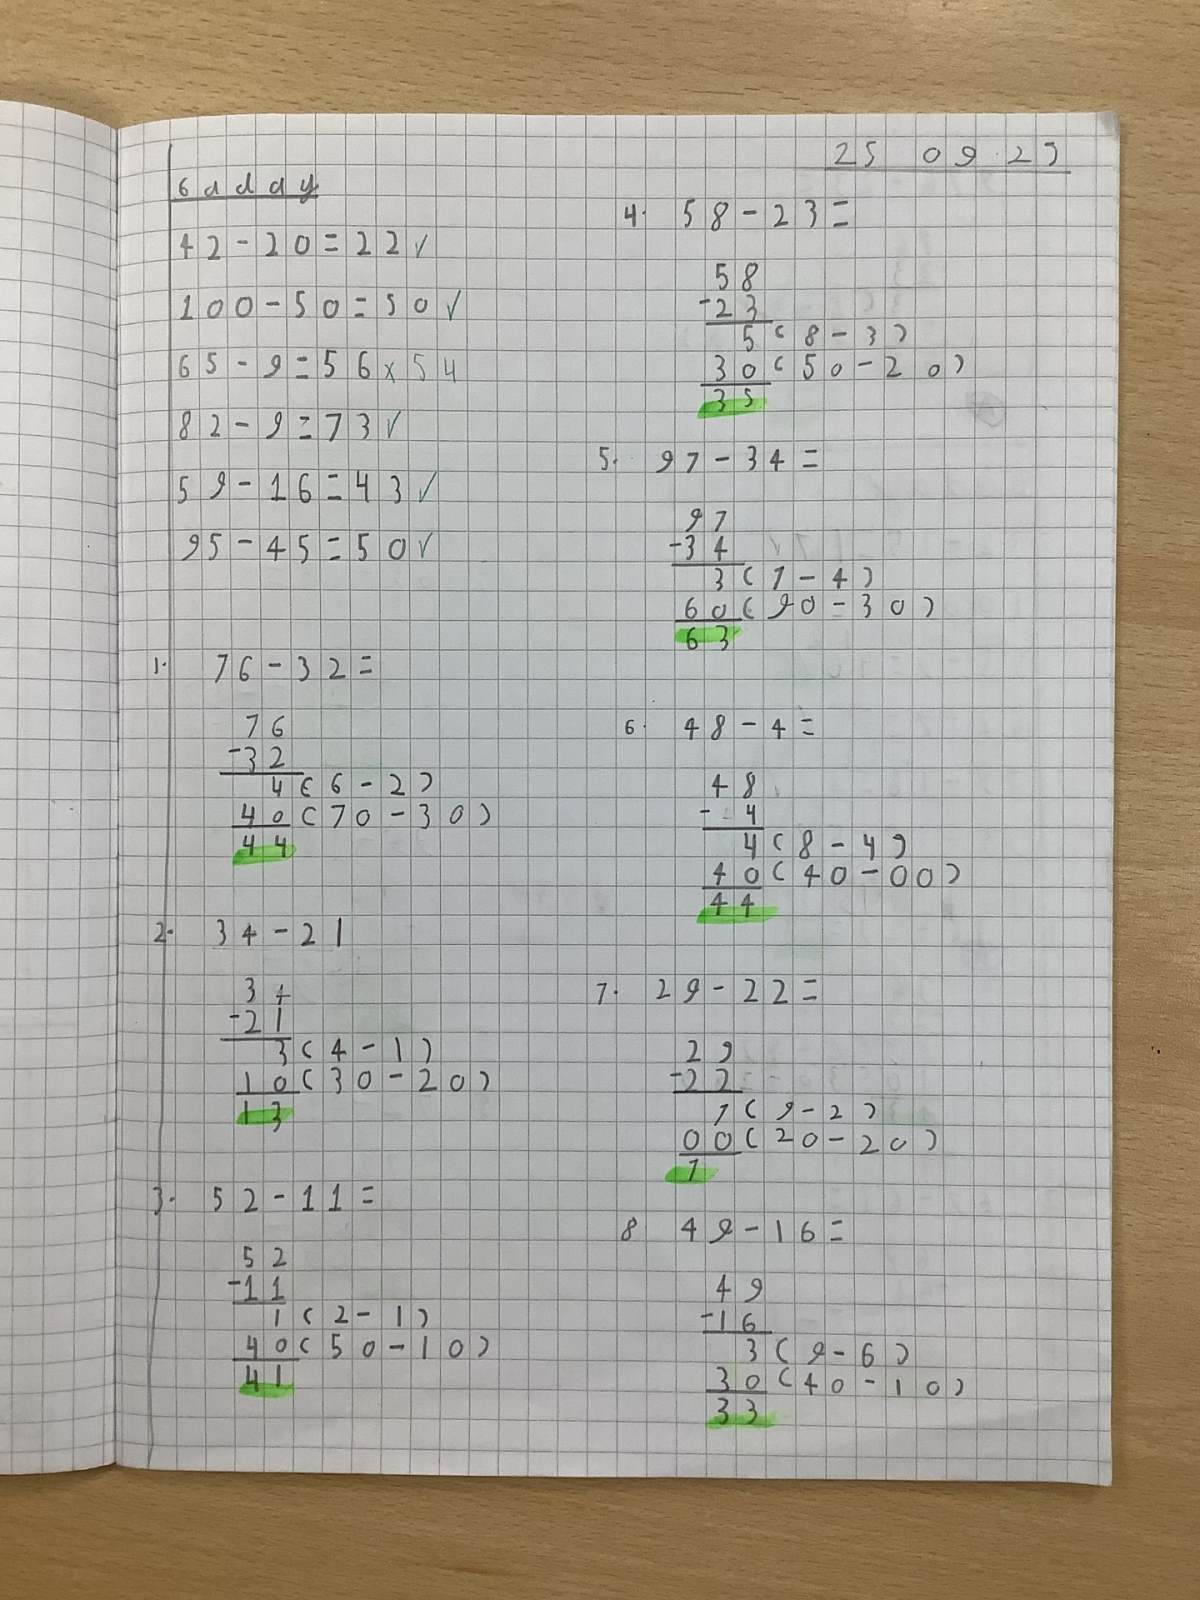 25 09.23
6 a day
42-20=22✓
100-50=50✓
65-9=56x54
82-9=73✓
59-16=43✓
95-45=50✓
1. 76-32=
76
-32
4(6-2)
40(70-30)
44
2. 34-21
34
-21
3(4-1)
10(30-20)
13
3. 52-11=
52
-11
1(2-1)
40(50-10)
41
4. 58-23=
58
-23
5(8-3)
30(50-20)
35
5. 97-34=
97
-34
3(7-4)
60(90-30)
63
6. 48-4=
48
-4
4(8-4)
40(40-00)
44
7. 29-22=
29
-22
7(9-2)
00(20-20)
7
8 49-16=
49
-16
3(9-6)
30(40-10)
33